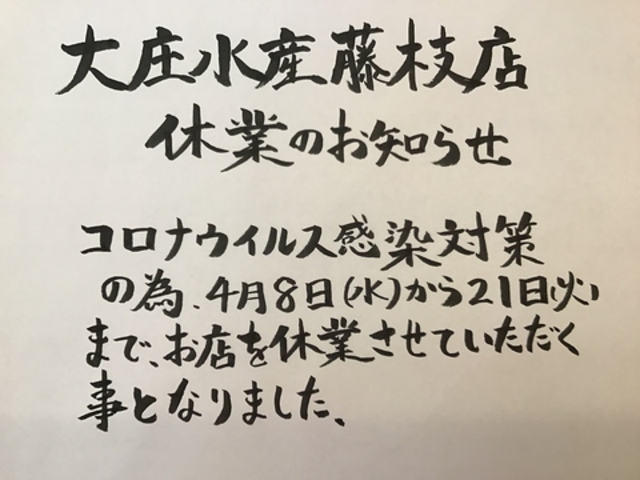 大庄水産藤枝店
休業のお知らせ
コロナウイルス感染対策
の為、4月8日(水)から21日(火)
まで、お店を休業させていただく
事となりました、